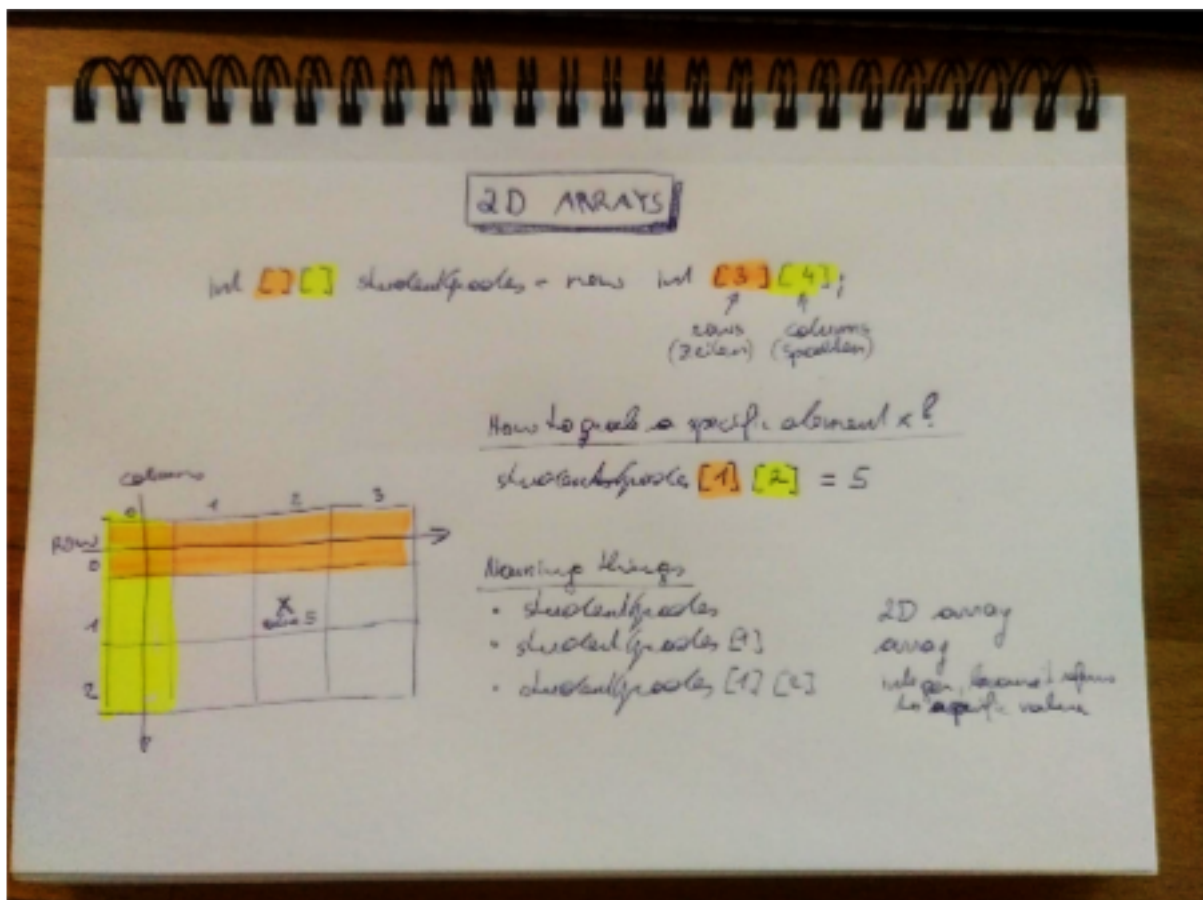 2D ARRAYS
int [][] studentGrades = new int [3][4];
rows columns
(Zeilen) (Spalten)
How to grab a specific element x?
studentGrades [1][2] = 5
columns
0 1 2 3
ROW
0
1
2
X
value 5
Naming things
• studentGrades 2D array
• studentGrades [1] array
• studentGrades [1][2] integer, because it refers
to specific value